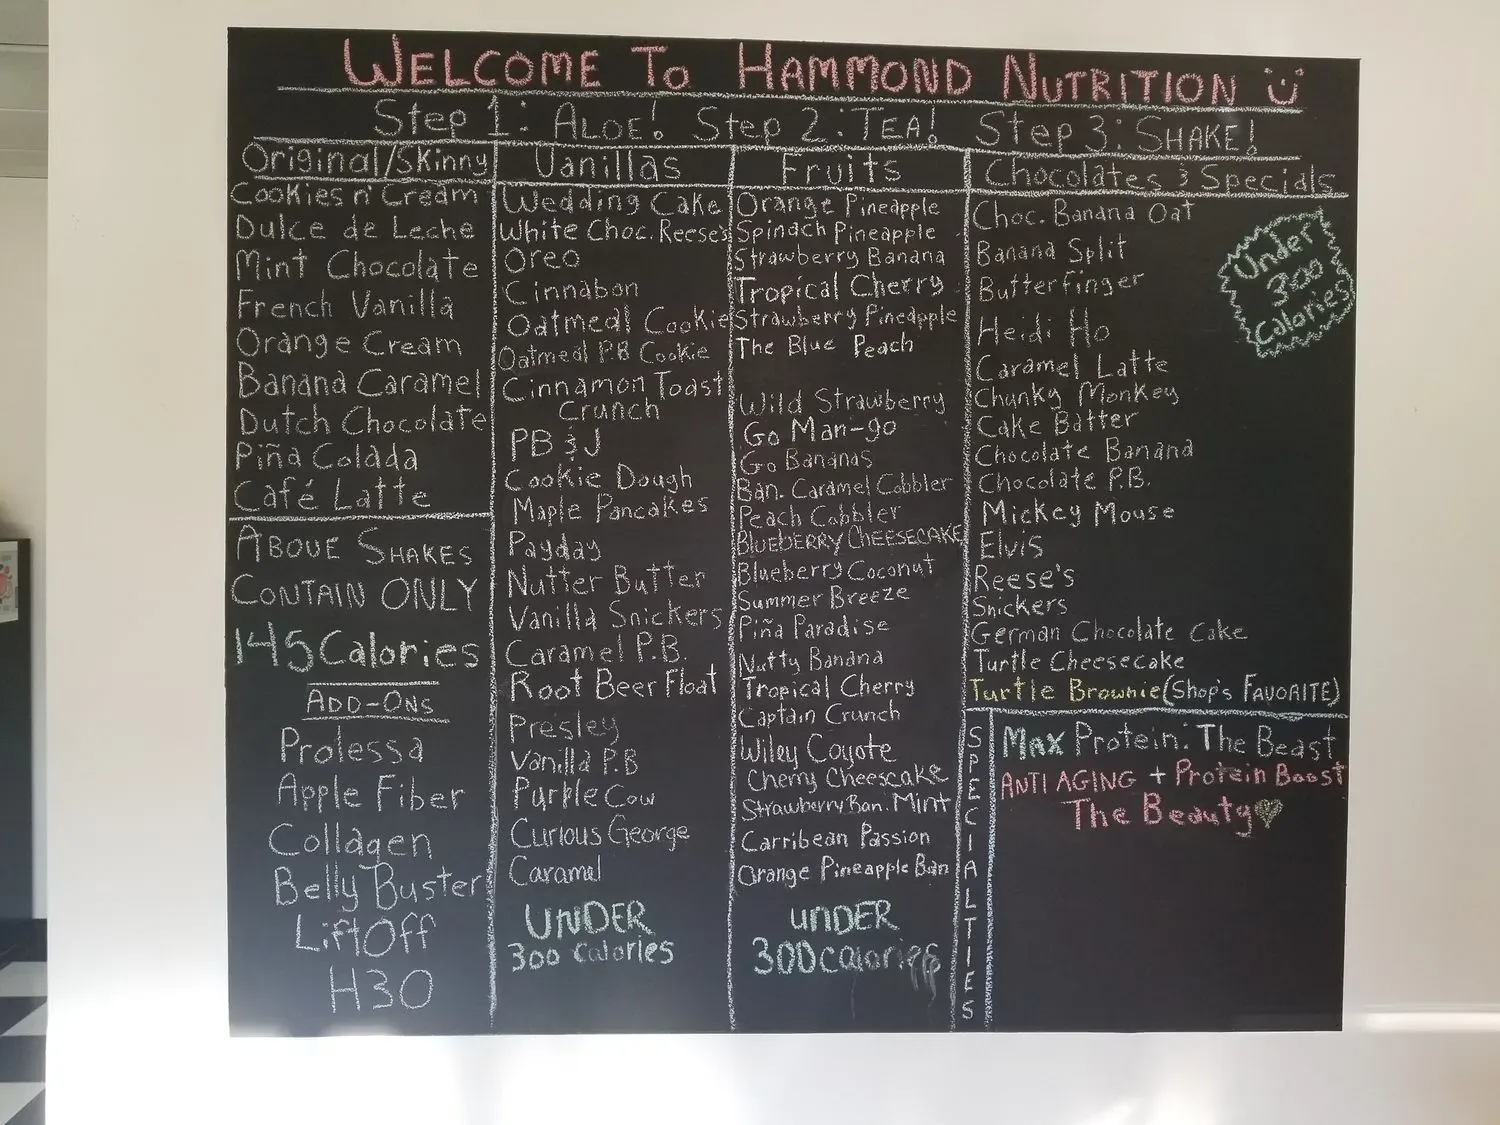 WELCOME TO HAMMOND NUTRITION
Step 1: ALOE! Step 2: TEA! Step 3: SHAKE!
Original/Skinny
Cookies n' Cream
Dulce de Leche
Mint Chocolate
French Vanilla
Orange Cream
Banana Caramel
Dutch Chocolate
Piña Colada
Café Latte
ABOVE SHAKES
CONTAIN ONLY
145 Calories
ADD-ONS
Prolessa
Apple Fiber
Collagen
Belly Buster
LiftOff
H3O
Vanillas
Wedding Cake
White Choc. Reese's
Oreo
Cinnabon
Oatmeal Cookie
Oatmeal P.B Cookie
Cinnamon Toast
Crunch
PB & J
Cookie Dough
Maple Pancakes
Payday
Nutter Butter
Vanilla Snickers
Caramel P.B.
Root Beer Float
Presley
Vanilla P.B
Purple Cow
Curious George
Caramel
UNDER
300 calories
Fruits
Orange Pineapple
Spinach Pineapple
Strawberry Banana
Tropical Cherry
Strawberry Pineapple
The Blue Peach
Wild Strawberry
Go Man-go
Go Bananas
Ban. Caramel Cobbler
Peach Cobbler
BLUEBERRY CHEESECAKE
Blueberry Coconut
Summer Breeze
Piña Paradise
Nutty Banana
Tropical Cherry
Captain Crunch
Wiley Coyote
Cherry Cheescake
Strawberry Ban. Mint
Carribean Passion
Orange Pineapple Ban
UNDER
300 calories
Chocolates & Specials
Choc. Banana Oat
Banana Split
Butterfinger
Heidi Ho
Caramel Latte
Chunky Monkey
Cake Batter
Chocolate Banana
Chocolate P.B.
Mickey Mouse
Elvis
Reese's
Snickers
German Chocolate Cake
Turtle Cheesecake
Turtle Brownie (Shop's FAVORITE)
Under
300
Calories
SPECIALTIES
Max Protein: The Beast
ANTI AGING + Protein Boost
The Beauty